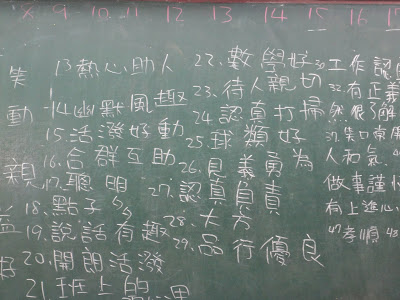 8 9 10 11 12 13 14 15 16
13熱心助人
14幽默風趣
15.活潑好動
16.合群互助
17.聰明
18.點子多
19.說話有趣
20.開朗活潑
21.班上的
22.數學好
23.待人親切
24.認真打掃
25.球類好
26.見義勇為
27.認真負責
28.大方
29.品行優良
失
動
親
益
好
工作認
有正義
然很了解
人和氣
做事謹
有上進心
孝順 43